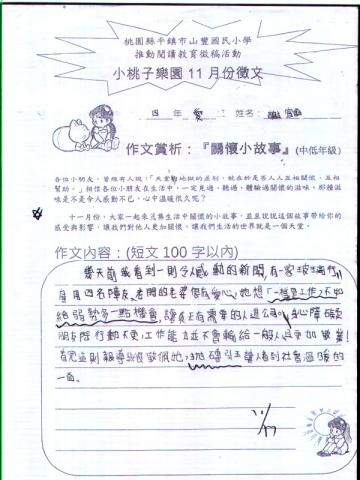 桃園縣平鎮市山豐國民小學
推動閱讀教育徵稿活動
小桃子樂園11月份徵文
四 年 愛 姓名:
作文賞析:『關懷小故事』(中低年級)
各位小朋友,曾經有人說:「天堂和地獄的差別,就在於是否人人互相關懷、互相
幫助。」相信各位小朋友在生活中,一定見過、聽過、體驗過關懷的滋味。那種滋
味是不是令人感動不已,心中溫暖很久呢?
十一月份,大家一起來蒐集生活中關懷的小故事,並且說說這個故事帶給你的
感受與影響,讓我們對他人更加關懷,讓我們生活的世界就是一個天堂。
作文內容:(短文100字以內)
幾天前我看到一則令人感動的新聞,有一家玻璃行
雇用四名障友,老闆的老婆很有愛心,她想「一樣是工作,不如
給弱勢多一點機會,讓真正有需要的人進公司。」身心障礙
朋友除行動不便,工作能力並不會輸給一般人,且更加敬業!
看完這則報導我很敬佩他,
讓人看到社會溫暖的
一面。